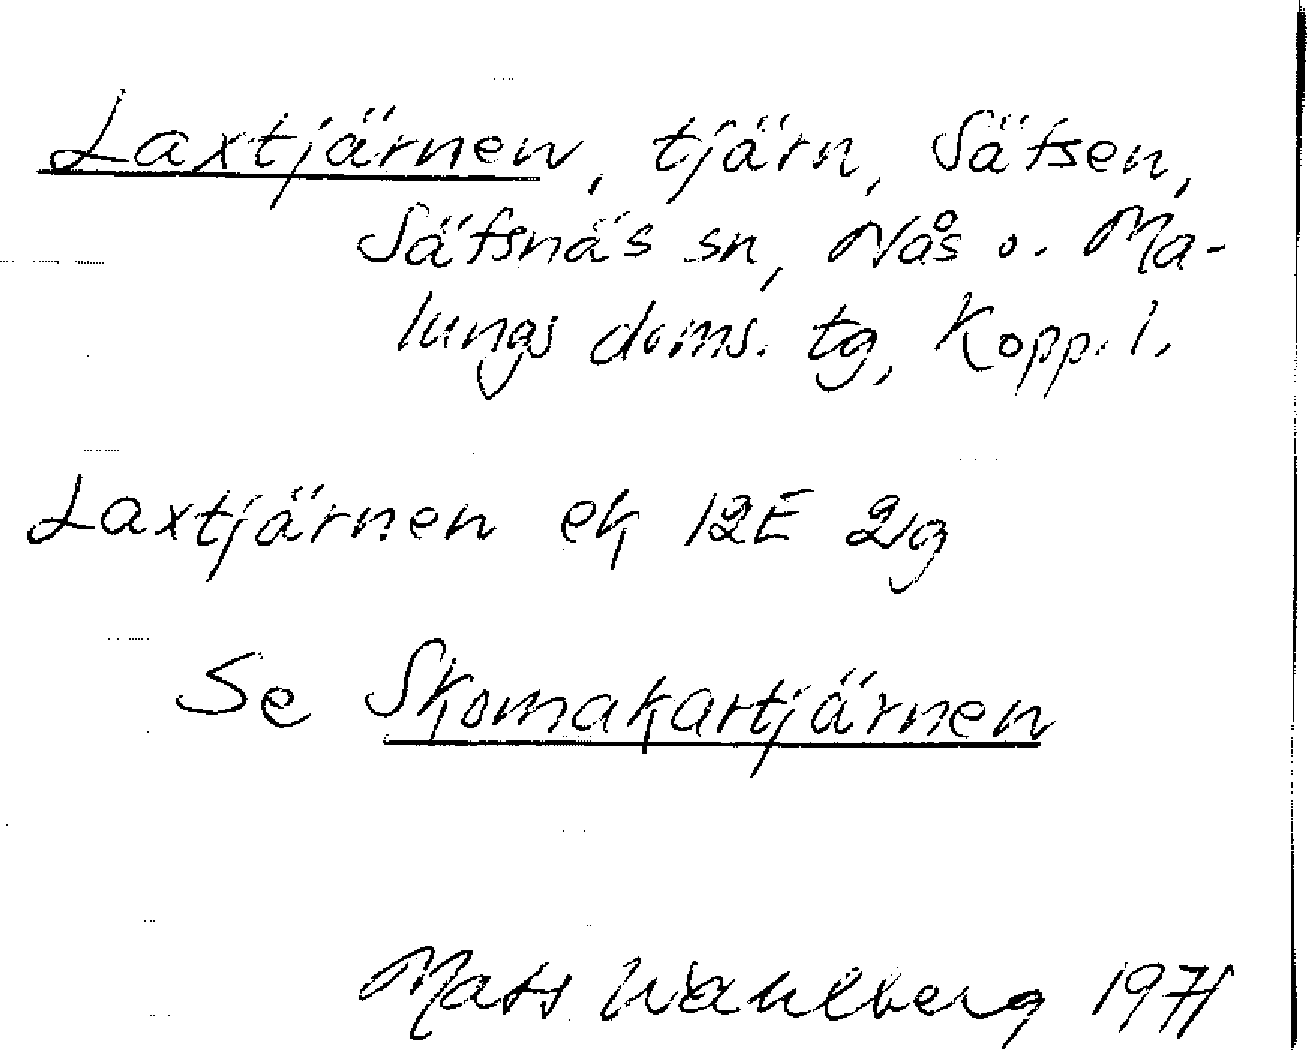 Laxtjärnen, tjärn, Säfsen,
Säfsnäs sn, Nås o. Ma-
lungs doms. tg, Kopp. l.
Laxtjärnen ek 12E 2g
Se Skomakartjärnen
Mats Wahlberg 1971